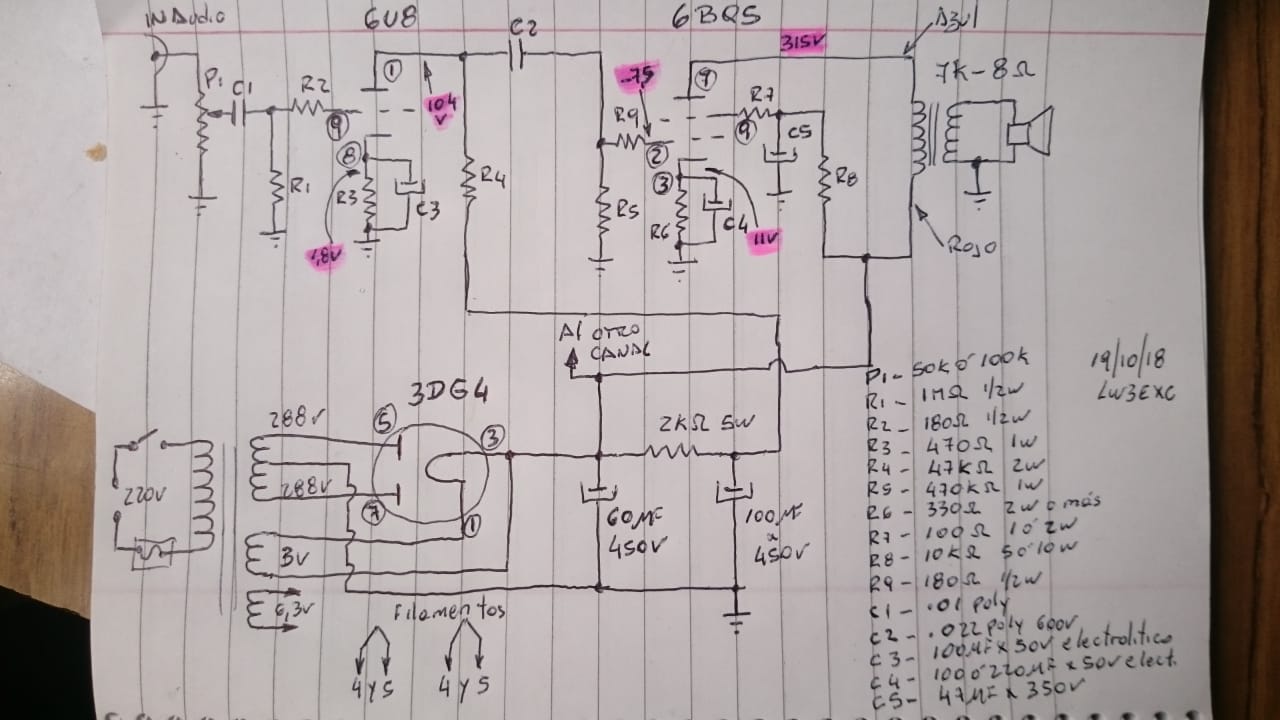 IN Audio
6U8
C2
6BQ5
Azul
315V
7K-8Ω
P1
C1
R2
①
104
V
-.75
R9
⑦
R7
⑨
⑨
⑧
②
C5
R1
R3
C3
R4
R5
③
R6
C4
R8
1,8V
11V
Rojo
Al otro
canal
3DG4
288V
⑤
③
2KΩ 5W
220V
288V
⑦
①
60µF
450V
100µF
a
450V
3V
6,3V
Filamentos
4 y 5
4 y 5
19/10/18
LW3EXC
P1- 50K ó 100K
R1- 1MΩ 1/2W
R2- 180Ω 1/2W
R3- 470Ω 1W
R4- 47KΩ 2W
R5- 470KΩ 1W
R6- 330Ω 2W o más
R7- 100Ω 1 ó 2W
R8- 10KΩ 5 ó 10W
R9- 180Ω 1/2W
C1- .01 poly
C2- .022 poly 600V
C3- 100µF x 50V electrolitico
C4- 100 ó 220µF x 50V elect.
C5- 47µF x 350V